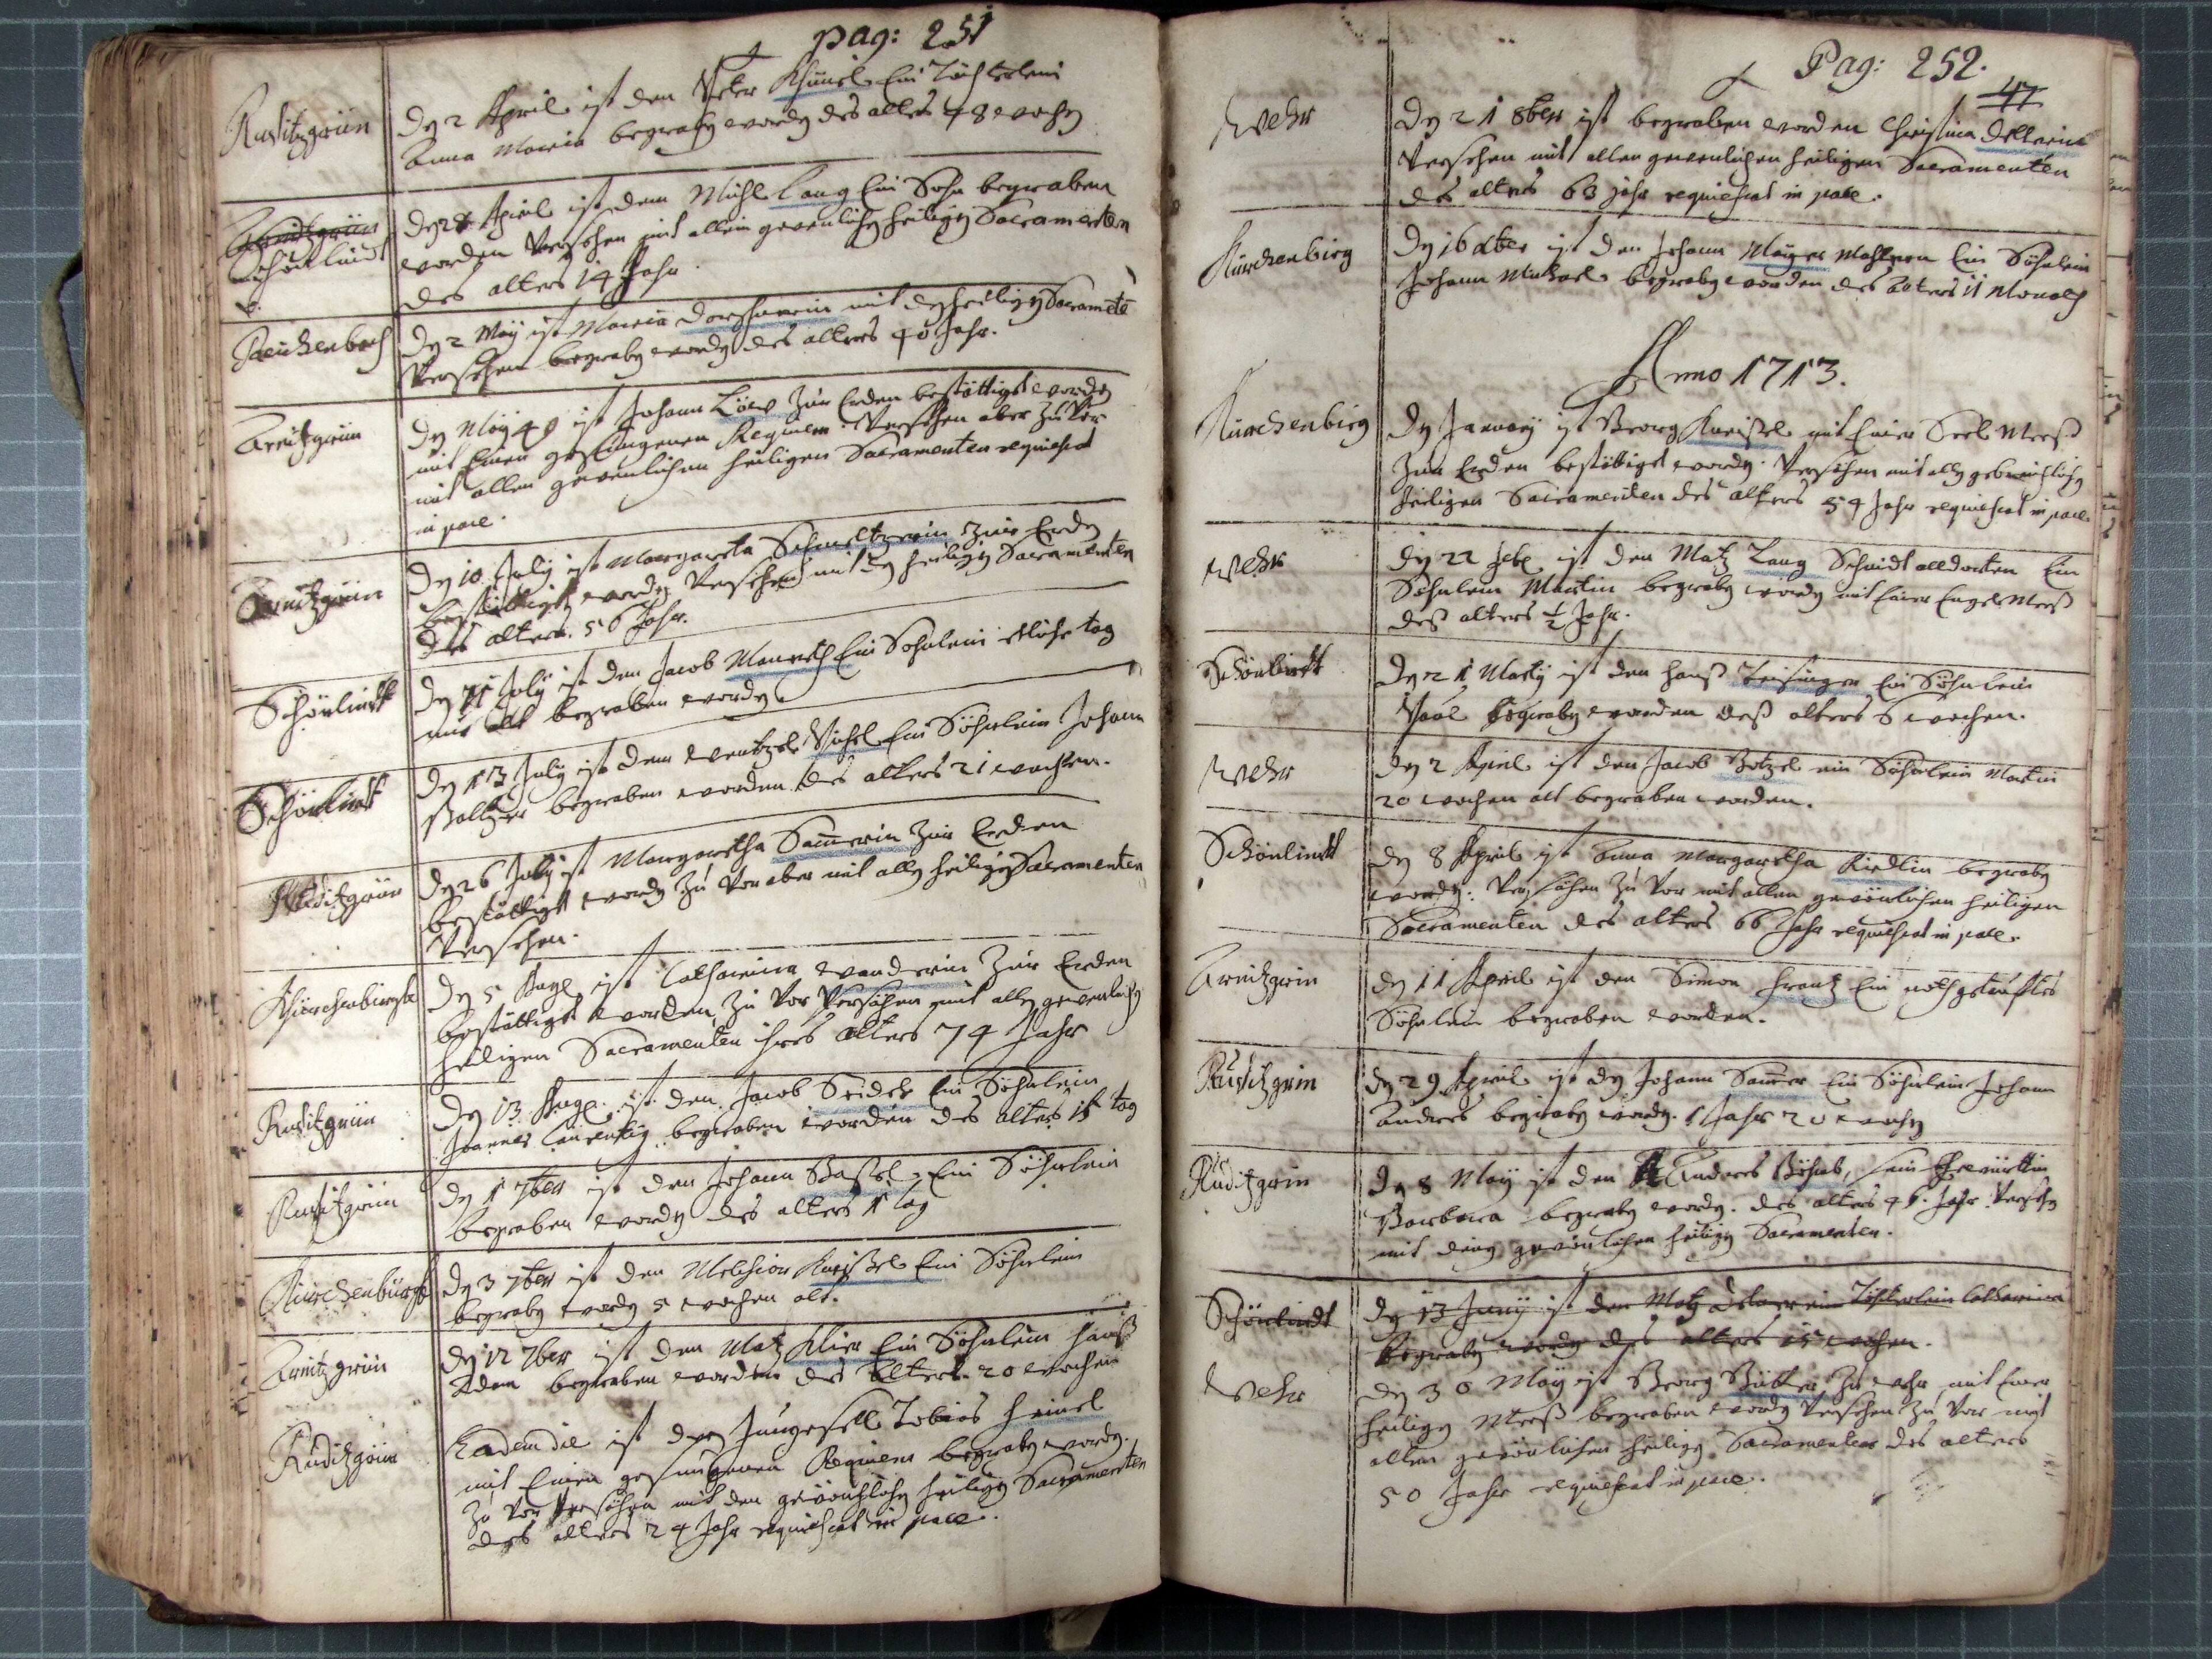 pag: 251
Ruditzgrün
Dẏ 2 Aprill ist den Peter Khünel Ein Töchterlein
Anna Maria begrabẏ wordẏ des alters 48 wochẏ
Arnitzgrün
Schönlindt
April ist dem Michl Lang Ein Sohn begraben
worden Versehen mit allen gewenlichẏ heiligẏ Sacramenten
des alters 14 Jahr.
Reichenbach
Dẏ 2 Maÿ ist Maria mit dẏ heiligẏ Sacramētē
Versehen begrabẏ wordẏ des alters 40 Jahr.
Arnitzgrün
Dẏ Maÿ 49 ist Johann Löw Zur Erden bestöttiget wordẏ
mit Einen gesungenen Requiem Versehen aber zu Vor
mit allen gewenlichen heiligen Sacramenten requiescat
in pace.
Arnitzgrün
Dẏ 10 Julÿ ist Margareta Schmeltzerin Zur Erdẏ
bestöttiget wordẏ Versehen mit dẏ heiligẏ Sacramenten
des alters 56 Jahr.
Schönlindt
Dẏ 11 Julÿ ist den Jacob Ein Sohnlein etliche tag
nur alt begraben wordẏ
Schönlindt
Dẏ 13 Julÿ ist dem Wentzel Pichel Ein Söhnlein Johann
Baltzer begraben worden des alters 21 wochen.
Ruditzgrün
Dẏ 26 Julÿ ist Margaretha Sam̄erin Zur Erden
bestöttiget wordẏ Zu Vor aber mit allẏ heiligẏ Sacramenten
Versehen.
Khirchenbirgk
Dẏ 5 Aug ist Catharina Wanderin Zur Erden
bestöttiget worden, Zu Vor Versehen mit allẏ gewenlichẏ
heiligen Sacramenten ihres Alters 74 Jahr
Ruditzgrün
Dẏ 13 Aug. ist den Jacob Seidel Ein Söhnlein
Joannes Laurentiÿ begraben worden des alters 15 tag
Ruditzgrün
Dẏ 1 7ber ist den Johann Bassel Ein Söhnlein
begraben wordẏ des alters 1 tag
Kürchenbürgk
Dẏ 3 7ber ist den Melchior Kreissel Ein Söhnlein
begrabẏ wordẏ 5 wochen alt.
Arnitzgrün
Dẏ 12 7ber ist den Matz Klier Ein Söhnlein Hanß
Adam begraben worden des Alters 20 wochen
Ruditzgrün
Eadem die ist der Jungesell Tobias Heinel
mit Einen gesungenen Requiem begrabẏ wordẏ.
Zu Vor Versehen mit den gewönlichẏ heiligẏ Sacramenten
des alters 24 Jahr requiescat in pace.
Pag: 252.
47
Wehr
Dẏ 21 8ber ist begraben worden Christina
Versehen mit allen gewenlichen heiligen Sacramenten
des alters 63 Jahr requiescat in pace.
Kürchenbirg
Dẏ 16 ist den Johann Maÿer Ein Söhnlein
Johann Michael begrabẏ worden des alters 11 Monath
Anno 1713.
Kürchenbirg
Dẏ Januarÿ ist Georg Kreissel mit Einer Seel Meß
Zur Erden bestöttiget wordẏ. Versehen mit allẏ gebreichlichẏ
heiligen Sacramenten des alters 54 Jahr requiescat in pace
Wehr
Dẏ 22 Feb ist den Matz Lang Schmidt alldorten Ein
Söhnlein Martin begrabẏ wordẏ mit Einer Engel Meß
deß alters ½ Jahr.
Schönlindt
Dẏ 21 Martÿ ist den Hanß Leisinger Ein Söhnlein
Paul begrabẏ worden deß alters 6 wochen.
Wehr
Dẏ 2 Aprill ist den Jacob Götzel ein Söhnlein Martin
20 wochen alt begraben worden.
Schönlindt
Dẏ 8 Aprill ist Anna Margaretha Riedlin begrabẏ
wordẏ: Versehen Zu Vor mit allen gewönlichen heiligen
Sacramenten des alters 66 Jahr requiescat in pace.
Arnitzgrin
Dẏ 11 Aprill ist den Simon Frantz Ein nothgetaufftes
Söhnlein begraben worden.
Ruditzgrin
Dẏ 29 Aprill ist dẏ Johann Sam̄er Ein Söhnlein Johann
Andres begrabẏ wordẏ. 1 Jahr 20 wochẏ
Ruditzgrin
Dẏ 8 Maÿ ist den Andres Böhmb, sein Ehewirttin
Barbara begrabẏ wordẏ. des alters 46 Jahr Versehẏ
mit denẏ gewönlichen heiligẏ Sacramenten.
Schönlindt
Dẏ 13 Junÿ ist den Matz ein Töchterlein Catharina
begrabẏ wordẏ des alters 15 wochen.
Wehr
Dẏ 30 Maÿ ist Georg Zu Wehr mit Einer
heiligẏ Meeß begraben wordẏ Versehen Zu Vor mit
allen gewönlichen heiligẏ Sacramenten des alters
50 Jahr requiescat in pace.